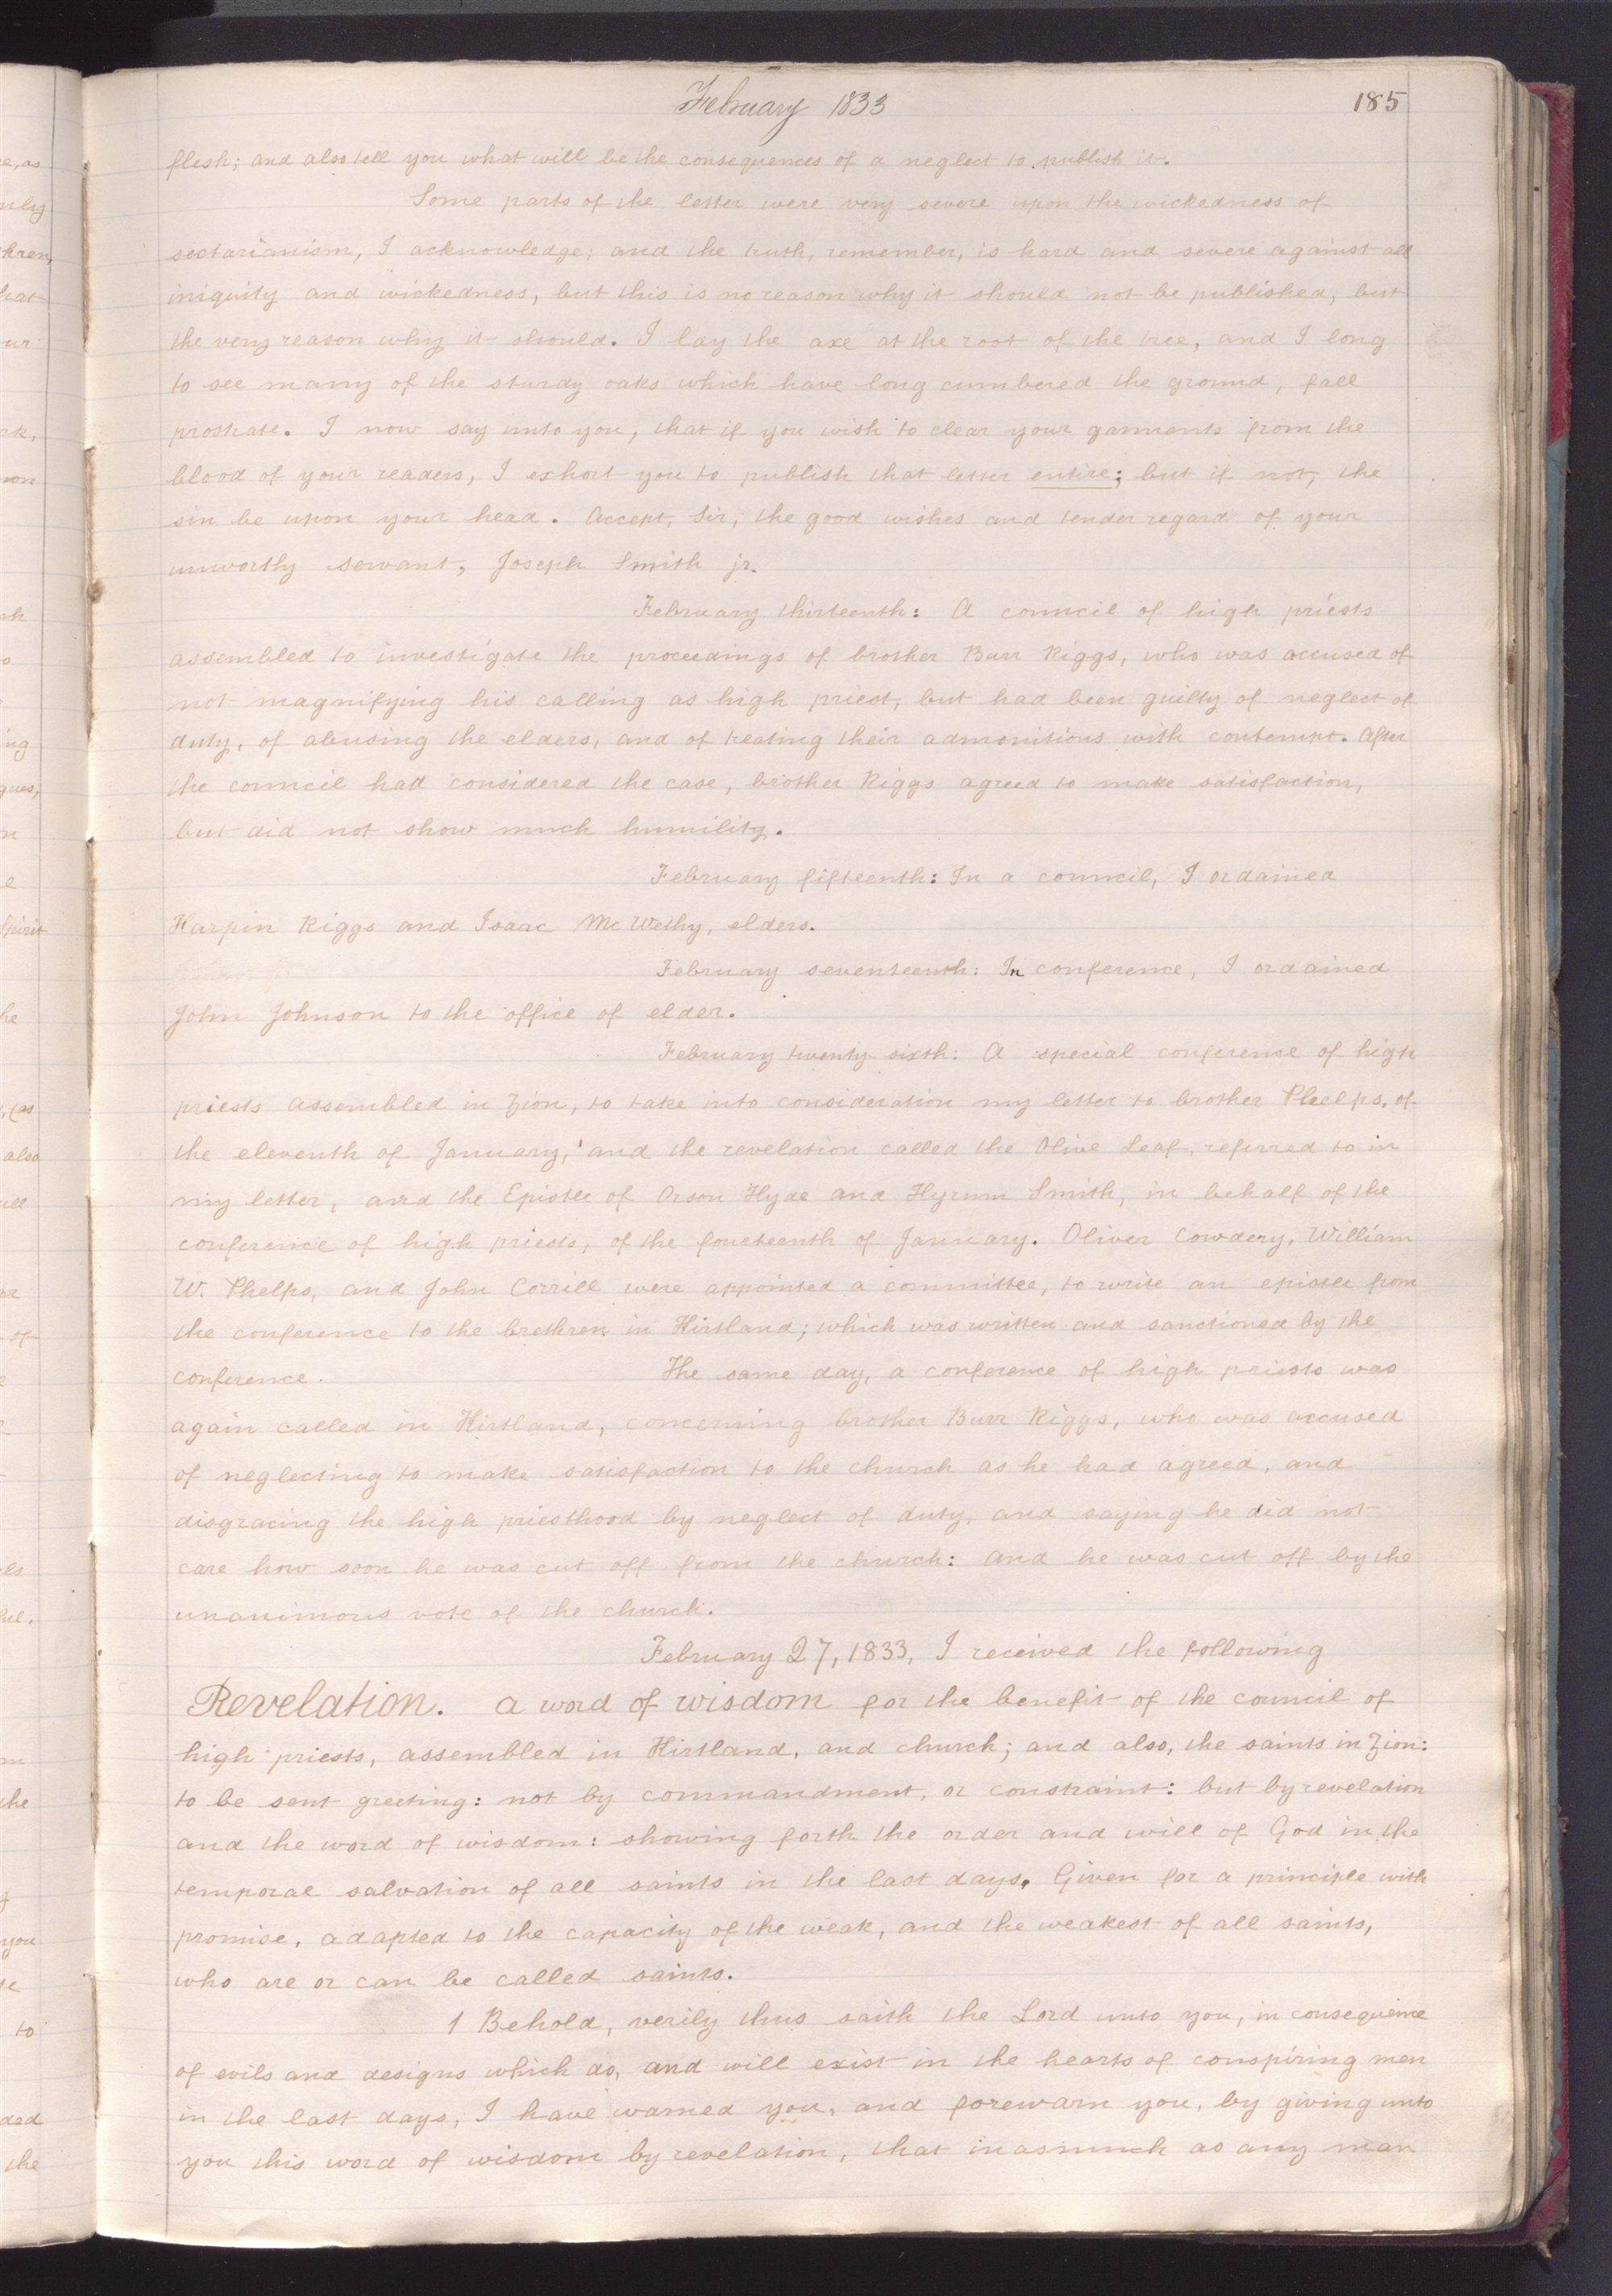 February 1833
185
flesh; and also tell you what will be the consequences of a neglect to publish it.
Some parts of the letter were very severe upon the wickedness of
sectarianism, I acknowledge; and the truth, remember, is hard and severe against all
iniquity and wickedness, but this is no reason why it should not be published, but
the very reason why it should. I lay the axe at the root of the tree, and I long
to see many of the sturdy oaks which have long cumbered the ground, fall
prostrate. I now say unto you, that if you wish to clear your garments from the
blood of your readers, I exhort you to publish that letter entire; but if not, the
sin be upon your head. Accept, Sir, the good wishes and tender regard of your
unworthy servant, Joseph Smith jr.
February thirteenth: A council of high priests
assembled to investigate the proceedings of brother Burr Riggs, who was accused of
not magnifying his calling as high priest, but had been guilty of neglect of
duty, of abusing the elders, and of treating their admonitions with contempt. After
the council had considered the case, brother Riggs agreed to make satisfaction,
but did not show much humility.
February fifteenth: In a council, I ordained
Harpin Riggs and Isaac McWethy, elders.
February seventeenth: In conference, I ordained
John Johnson to the office of elder.
February twenty sixth: A special conference of high
priests assembled in Zion, to take into consideration my letter to brother Phelps, of
the eleventh of January, and the revelation called the Olive Leaf, referred to in
my letter, and the Epistle of Orson Hyde and Hyrum Smith, in behalf of the
conference of high priests, of the fourteenth of January. Oliver Cowdery, William
W. Phelps, and John Corrill were appointed a committee, to write an epistle from
the conference to the brethren in Kirtland; which was written and sanctioned by the
conference. The same day, a conference of high priests was
again called in Kirtland, concerning brother Burr Riggs, who was accused
of neglecting to make satisfaction to the church as he had agreed, and
disgracing the high priesthood by neglect of duty, and saying he did not
care how soon he was cut off from the church: and he was cut off by the
unanimous vote of the church.
February 27, 1833, I received the following
Revelation. A word of wisdom for the benefit of the council of
high priests, assembled in Kirtland, and church; and also, the saints in Zion:
to be sent greeting: not by commandment, or constraint: but by revelation
and the word of wisdom: showing forth the order and will of God in the
temporal salvation of all saints in the last days. Given for a principle with
promise, adapted to the capacity of the weak, and the weakest of all saints,
who are or can be called saints.
1 Behold, verily thus saith the Lord unto you, in consequence
of evils and designs which do, and will exist in the hearts of conspiring men
in the last days, I have warned you, and forewarn you, by giving unto
you this word of wisdom by revelation, that inasmuch as any man